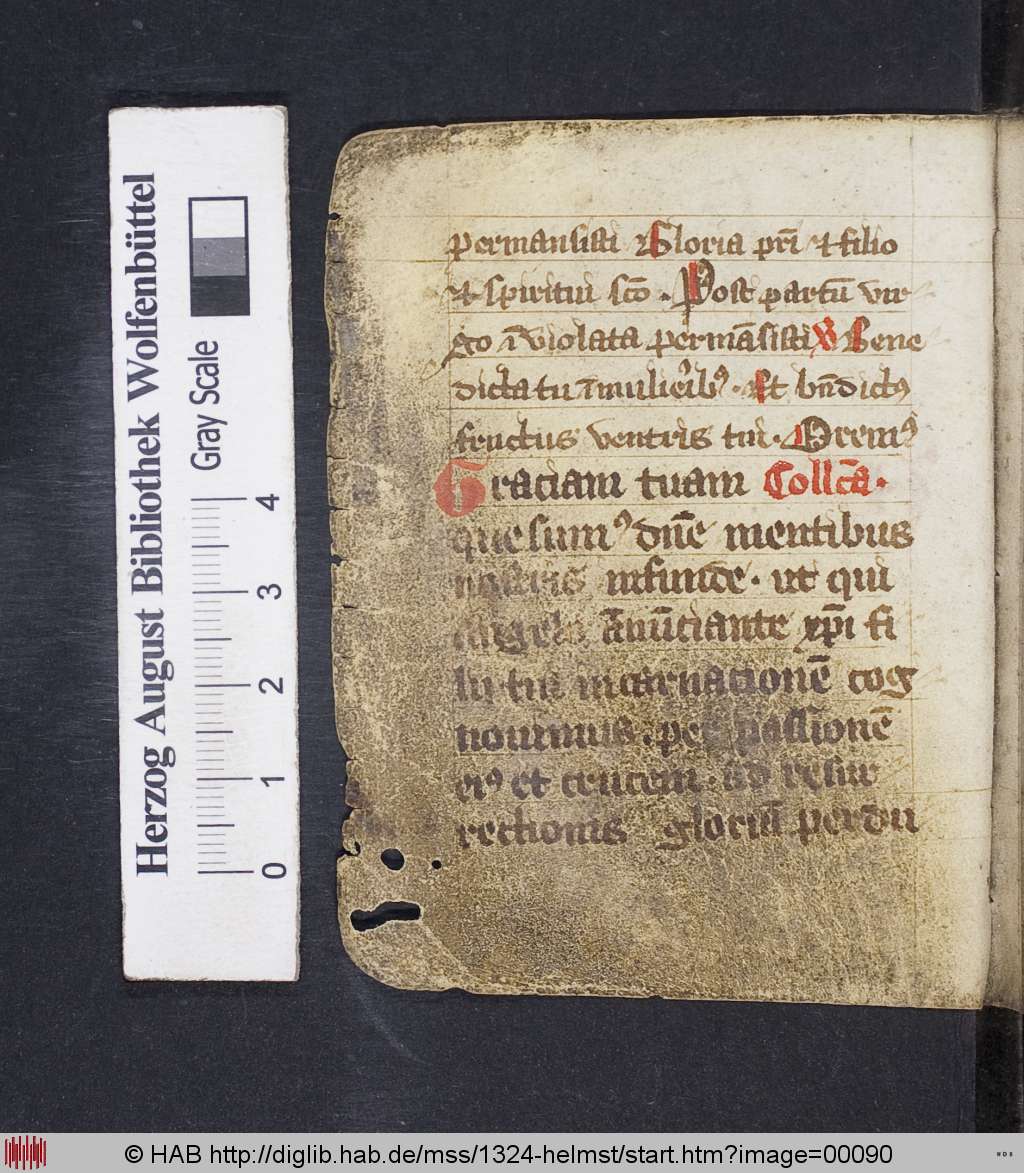 Herzog August Bibliothek Wolfenbüttel
Gray Scale
0 1 2 3 4
permansisti Gloria pri̅ et filio
et spiritui sc̅o . Post partu̅ vir
go i̅violata perma̅sisti ℣ Bene
dicta tu i̅ mulierib⁹ . Et bn̅dict⁹
fructus ventris tui . Orem⁹
Graciam tuam Collc̅a .
que sum⁹ dn̅e mentibus
nostris infunde . ut qui
angelo a̅nu̅ciante xp̅i fi
lii tui incarnacione̅ cog
nouimus . per passione̅
ei⁹ et crucem . ad resur
rectionis gloria̅ perdu
© HAB http://diglib.hab.de/mss/1324-helmst/start.htm?image=00090